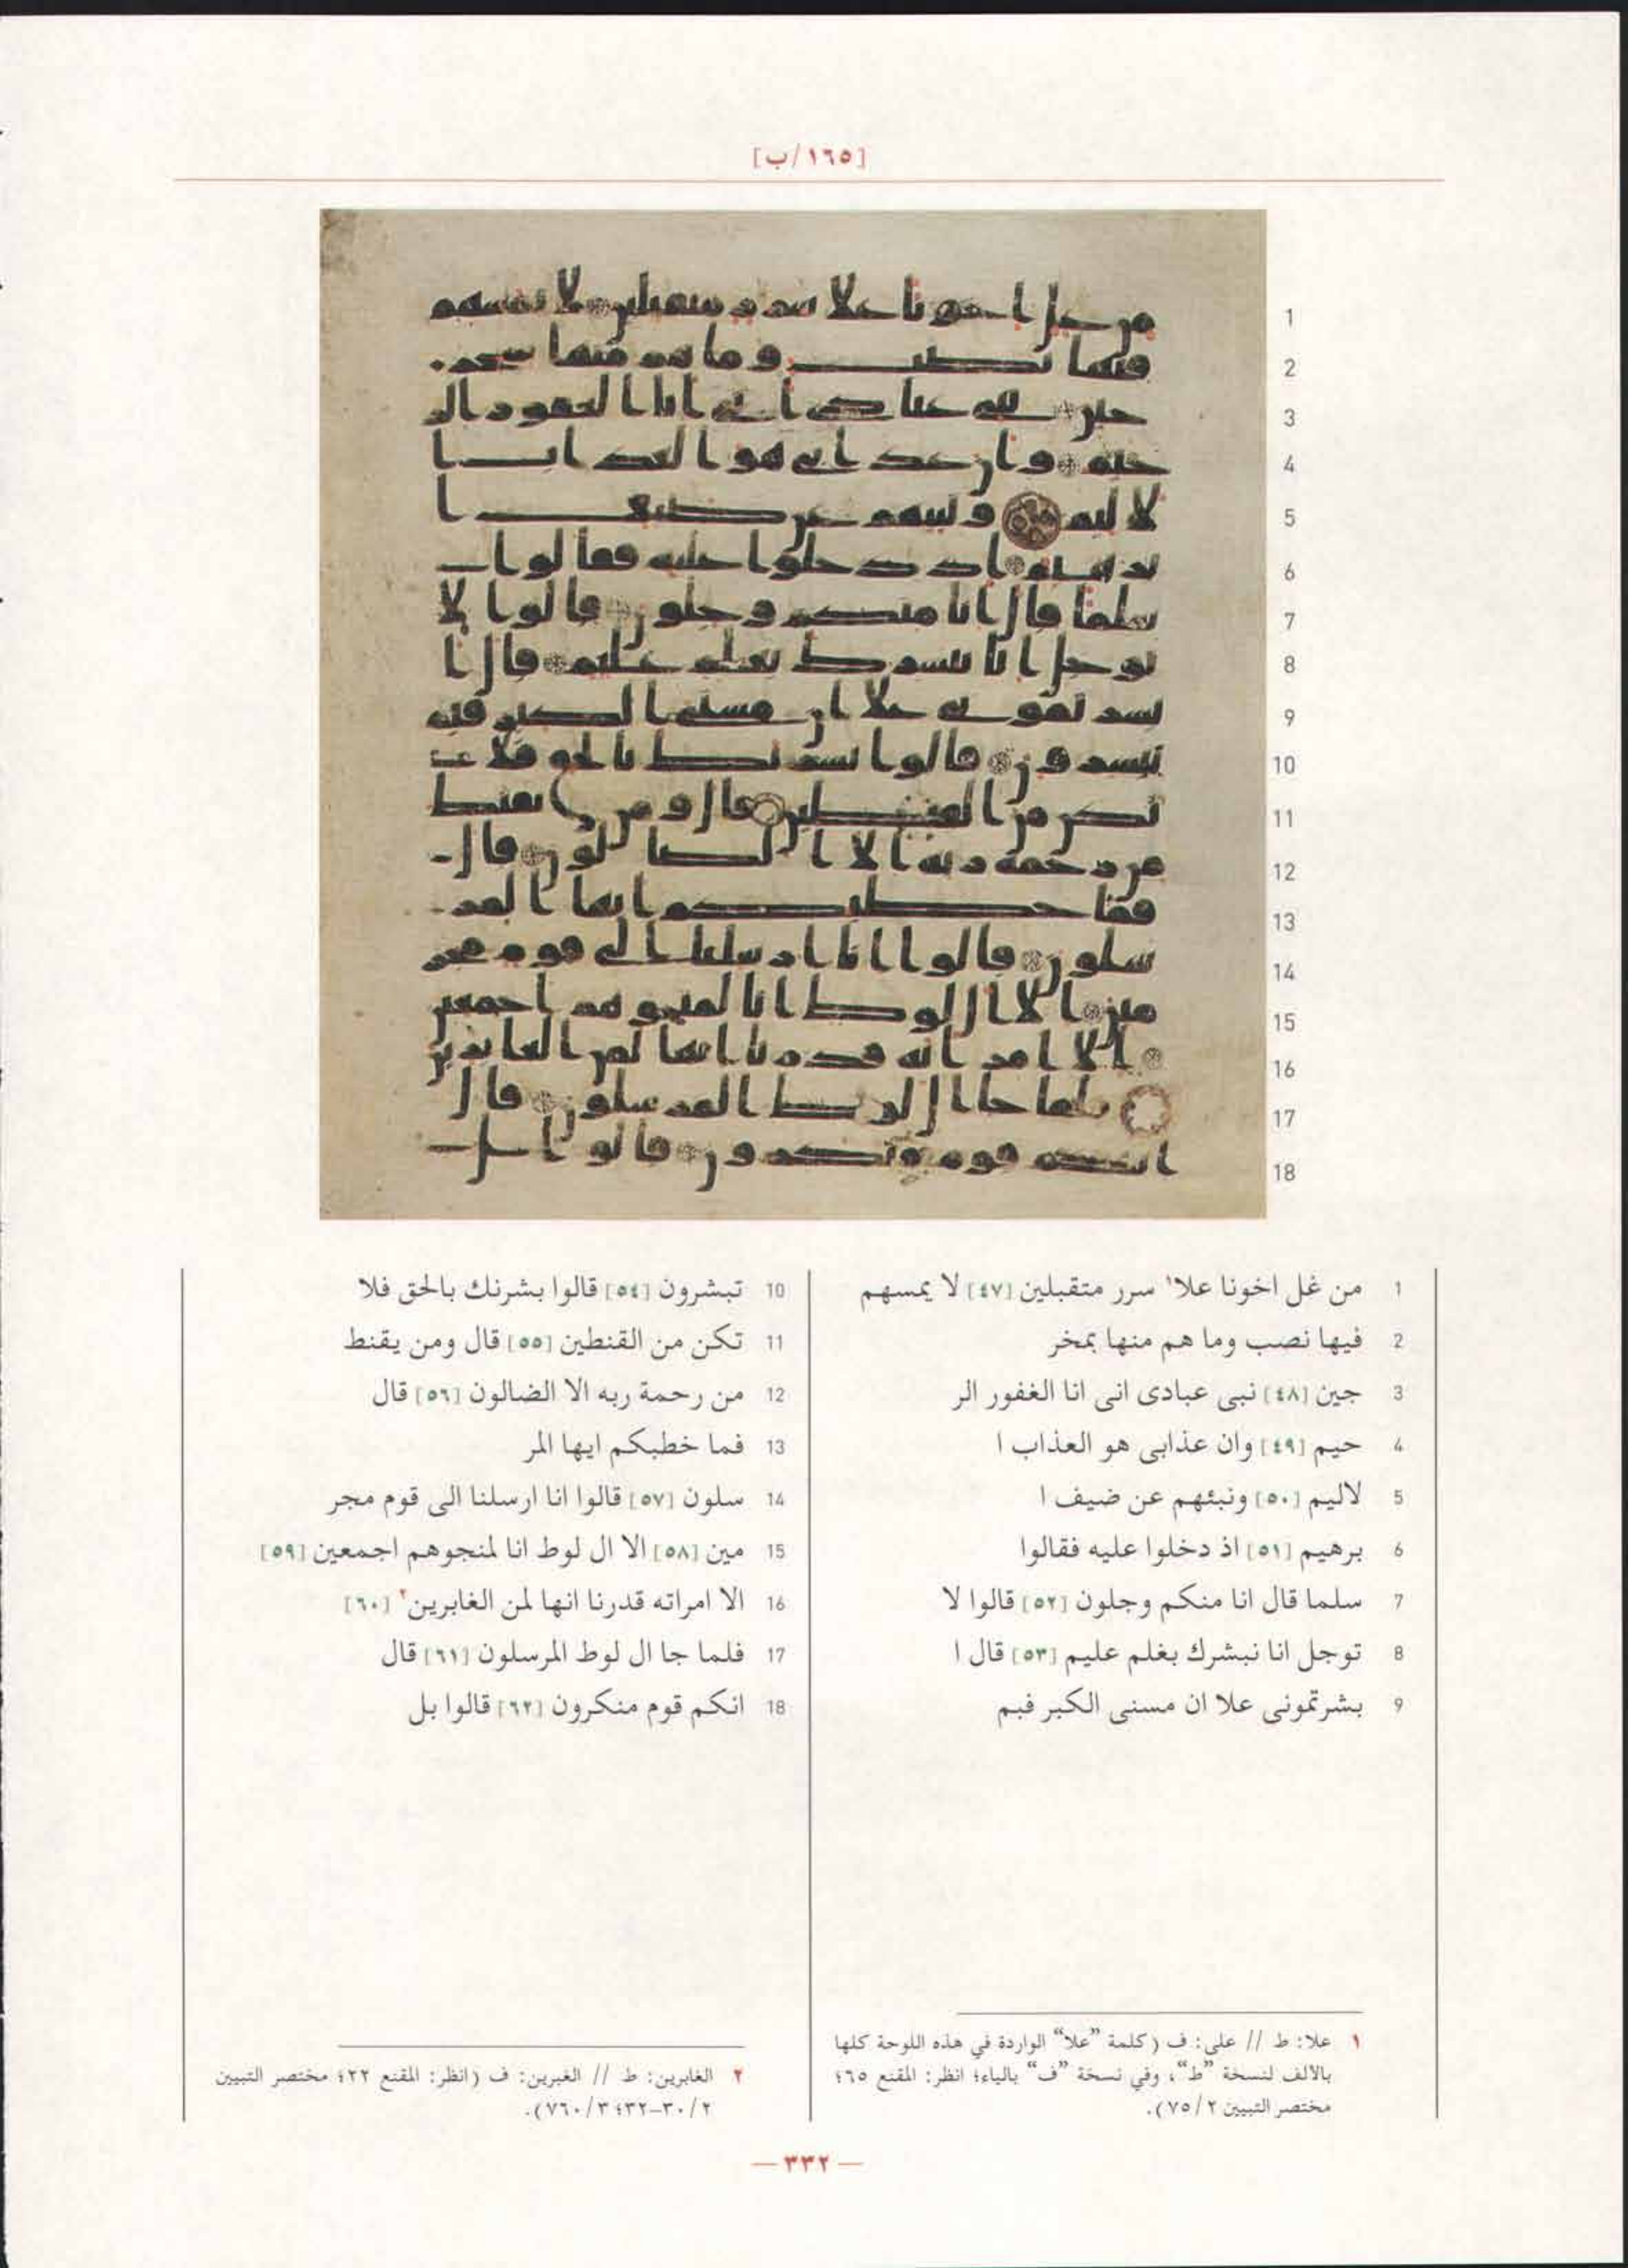 [١٦٥/ب]
1 من غل اخونا علا١ سرر متقبلين [٤٧] لا يمسهم
2 فيها نصب وما هم منها بمخر
3 جين [٤٨] نبى عبادى انى انا الغفور الر
4 حيم [٤٩] وان عذابى هو العذاب ا
5 لاليم [٥٠] ونبئهم عن ضيف ا
6 برهيم [٥١] اذ دخلوا عليه فقالوا
7 سلما قال انا منكم وجلون [٥٢] قالوا لا
8 توجل انا نبشرك بغلم عليم [٥٣] قال ا
9 بشرتمونى علا ان مسنى الكبر فبم
10 تبشرون [٥٤] قالوا بشرنك بالحق فلا
11 تكن من القنطين [٥٥] قال ومن يقنط
12 من رحمة ربه الا الضالون [٥٦] قال
13 فما خطبكم ايها المر
14 سلون [٥٧] قالوا انا ارسلنا الى قوم مجر
15 مين [٥٨] الا ال لوط انا لمنجوهم اجمعين [٥٩]
16 الا امراته قدرنا انها لمن الغابرين٢ [٦٠]
17 فلما جا ال لوط المرسلون [٦١] قال
18 انكم قوم منكرون [٦٢] قالوا بل
١ علا: ط // على: ف (كلمة "علا" الواردة في هذه اللوحة كلها
بالالف لنسخة "ط"، وفي نسخة "ف" بالياء؛ انظر: المقنع ٦٥؛
مختصر التبيين ٢/٧٥).
٢ الغابرين: ط // الغبرين: ف (انظر: المقنع ٢٢؛ مختصر التبيين
٢/٣٠-٣٢؛ ٣/٧٦٠).
— ٣٣٢ —